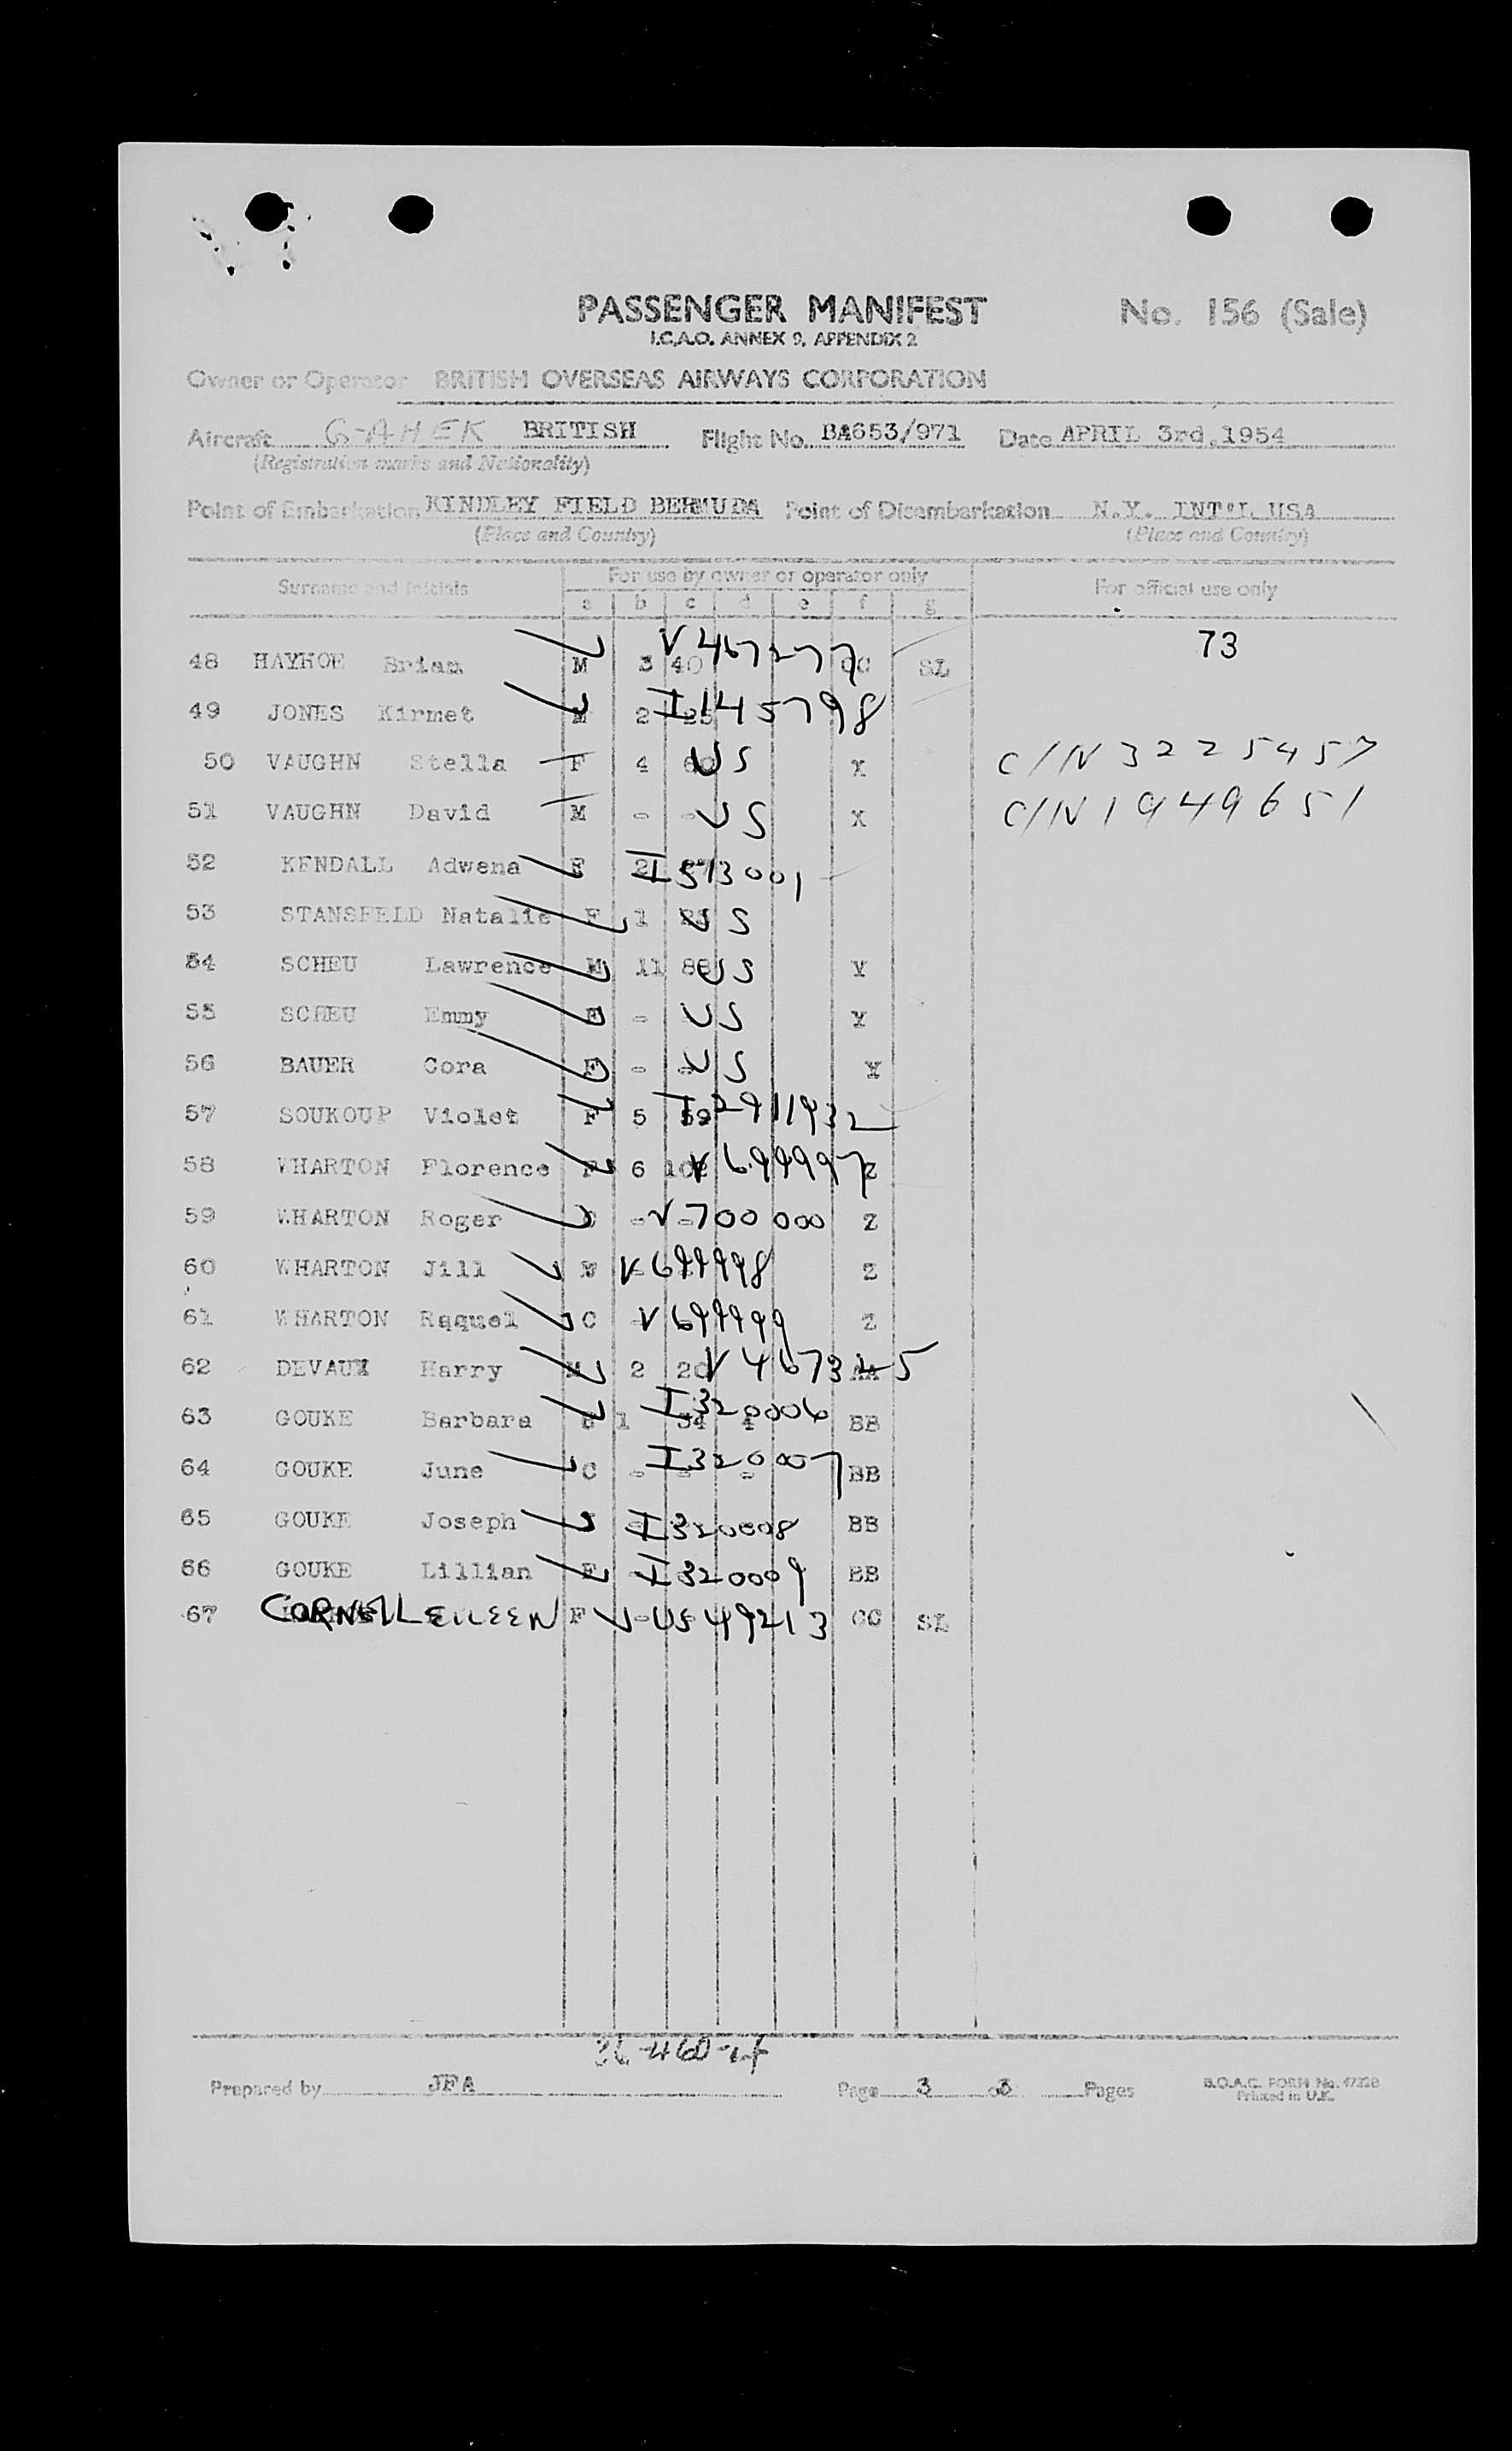 PASSENGER MANIFEST No. 156 (Sale)
I.C.A.O. ANNEX 9, APPENDIX 2
Owner or Operator BRITISH OVERSEAS AIRWAYS CORPORATION
Aircraft G-AHEK BRITISH Flight No. BA653/971 Date APRIL 3rd, 1954
(Registration marks and Nationality)
Point of Embarkation KINDLEY FIELD BERMUDA Point of Disembarkation N.Y. INT'L USA
(Place and Country) (Place and Country)
Surname and Initials For use by owner or operator only For official use only
a b c d e f g
73
48 HAYHOE Brian M 3 40 V467277 CC SL
49 JONES Kirmet M 2 25 I145798
50 VAUGHN Stella F 4 60 US X C/N 3225457
51 VAUGHN David M - - US X C/N 1949651
52 KENDALL Adwena F 2 I573001
53 STANSFELD Natalie F 1 US
54 SCHEU Lawrence M 11 88 US Y
55 SCHEU Emmy F - US Y
56 BAUER Cora F - - US Y
57 SOUKOUP Violet F 5 59 I2911932
58 WHARTON Florence F 6 V699997 Z
59 WHARTON Roger - - V700000 Z
60 WHARTON Jill V699998 Z
61 WHARTON Raquel C V699999 Z
62 DEVAUX Harry M 2 20 V467325 AA
63 GOUKE Barbara 1 34 4 I320006 BB
64 GOUKE June C - - - I320007 BB
65 GOUKE Joseph I320008 BB
66 GOUKE Lillian F I320009 BB
67 CORNELL EILEEN F - - US 49213 CC SL
36-460-4
Prepared by JFA Page 3 of 3 Pages B.O.A.C. FORM No. 4722B
Printed in U.K.